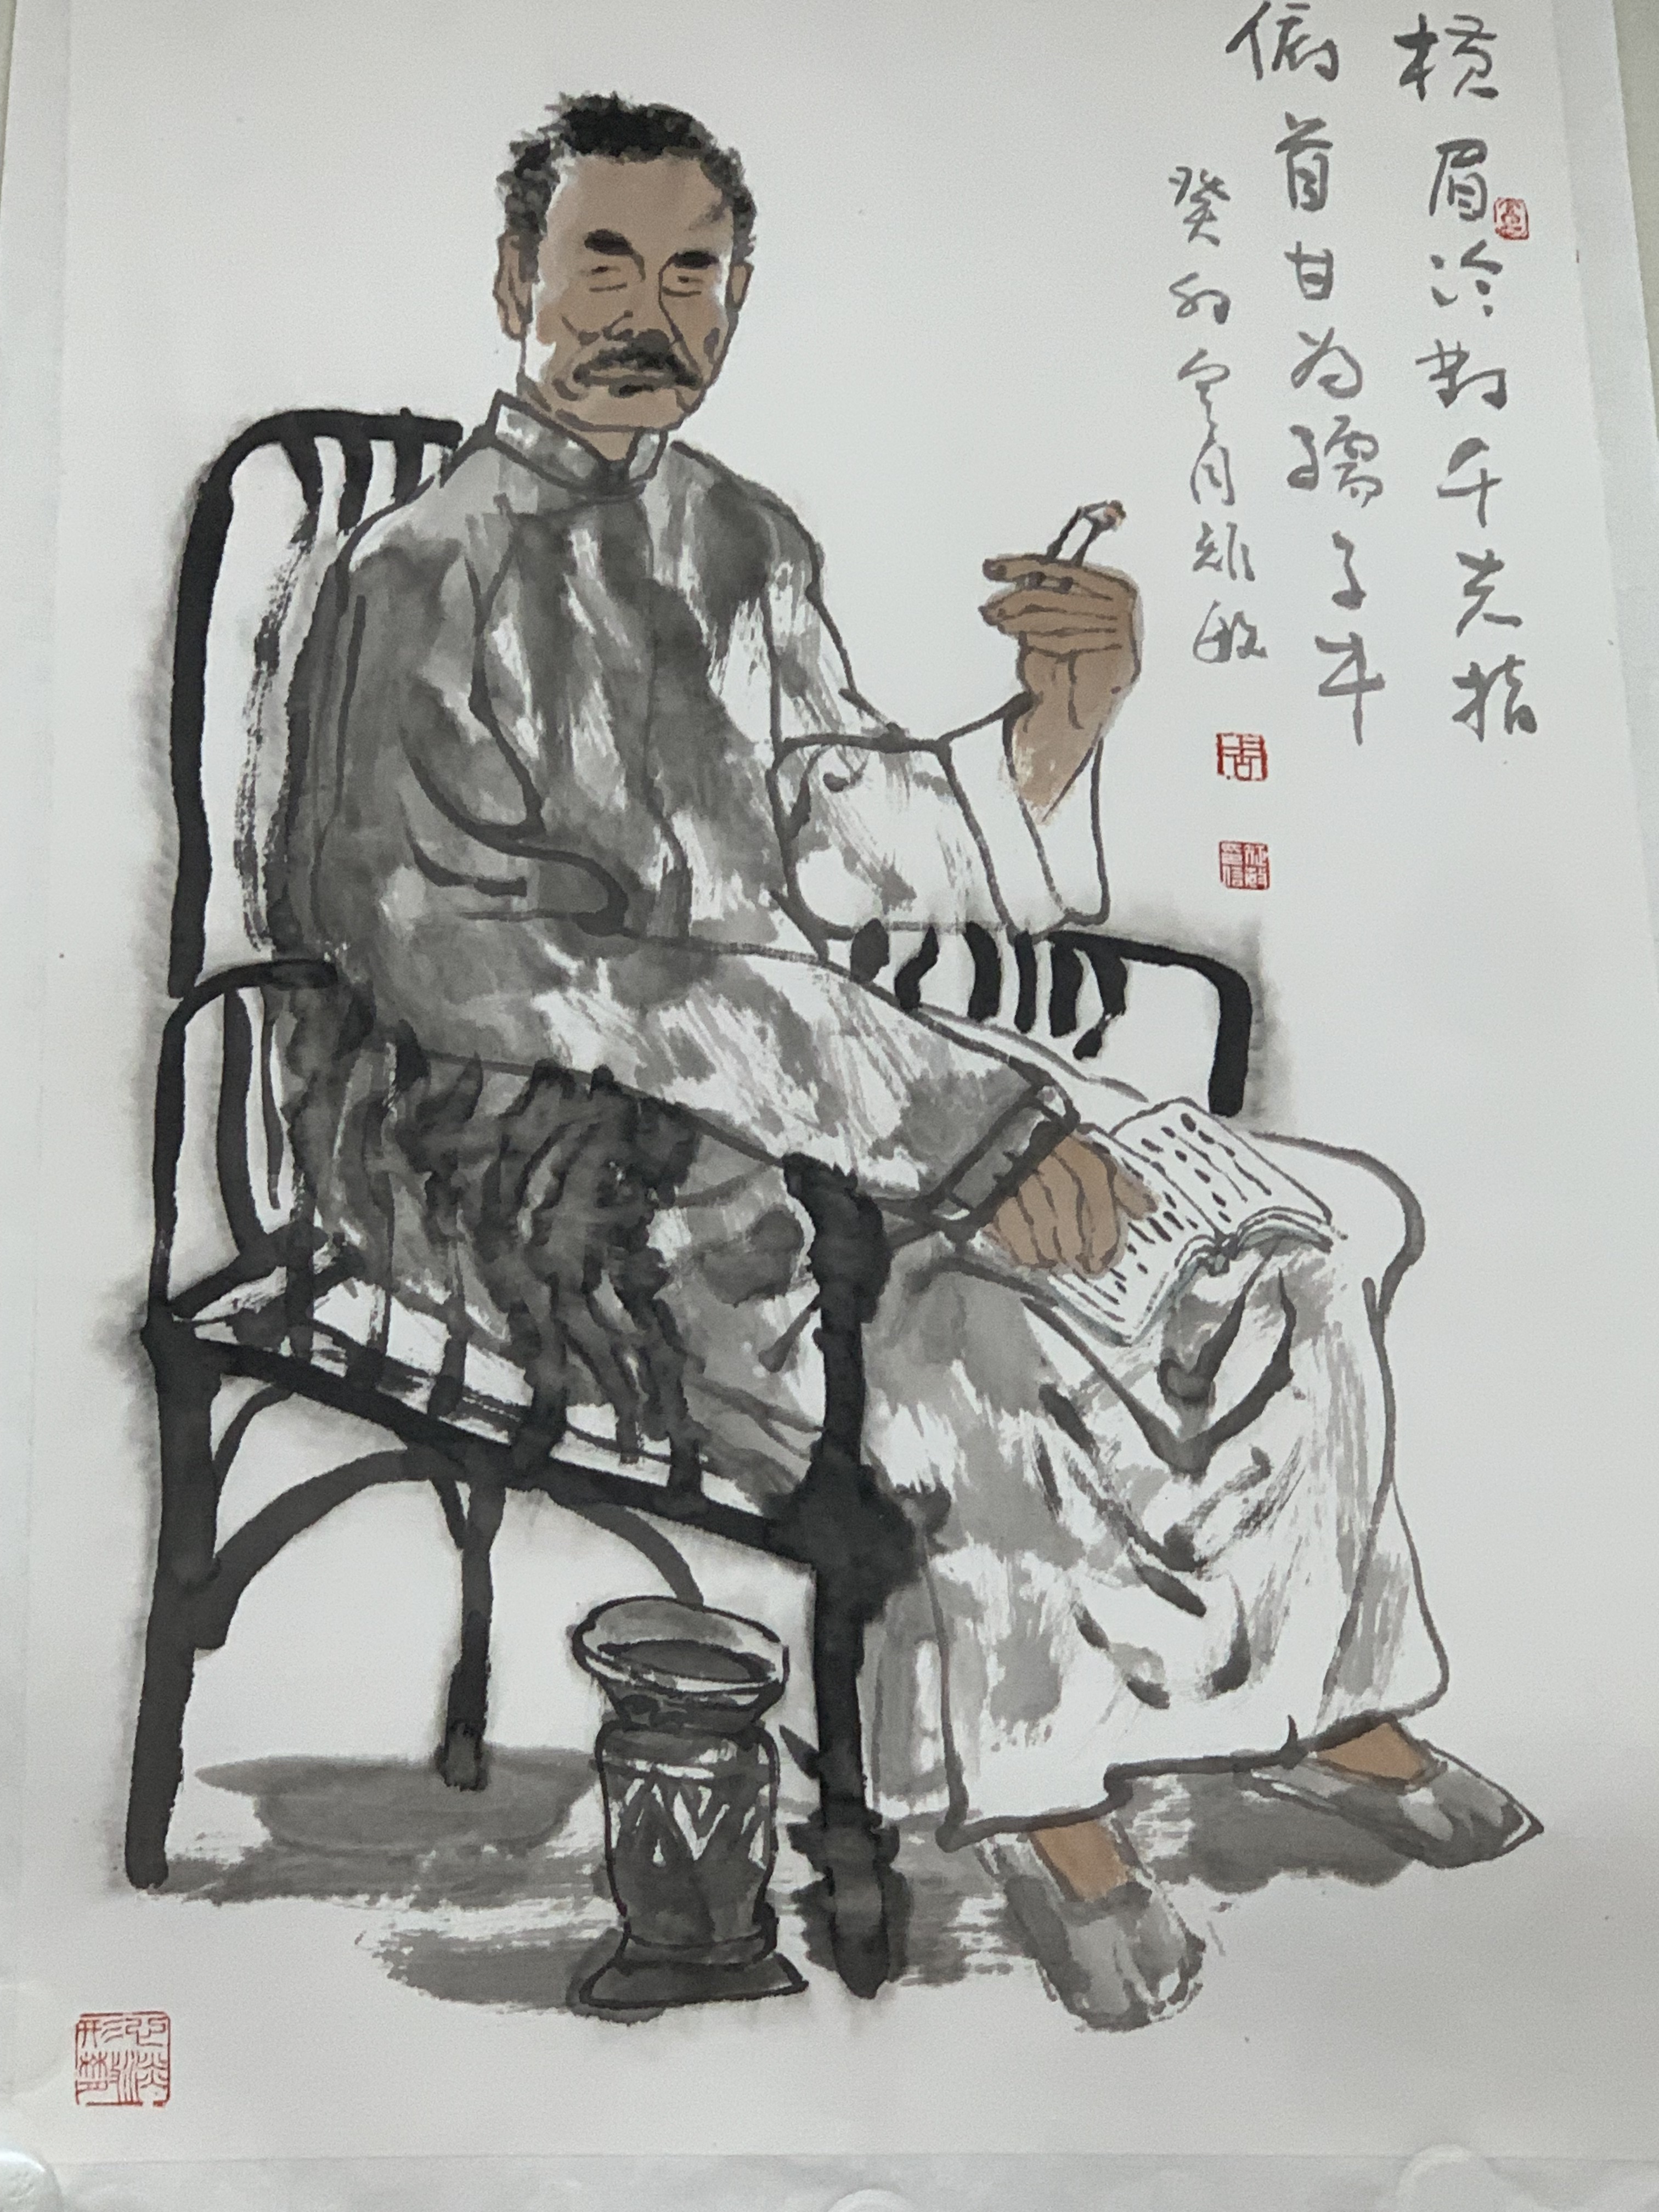 横眉冷對千夫指
俯首甘为孺子牛
癸卯冬月
周